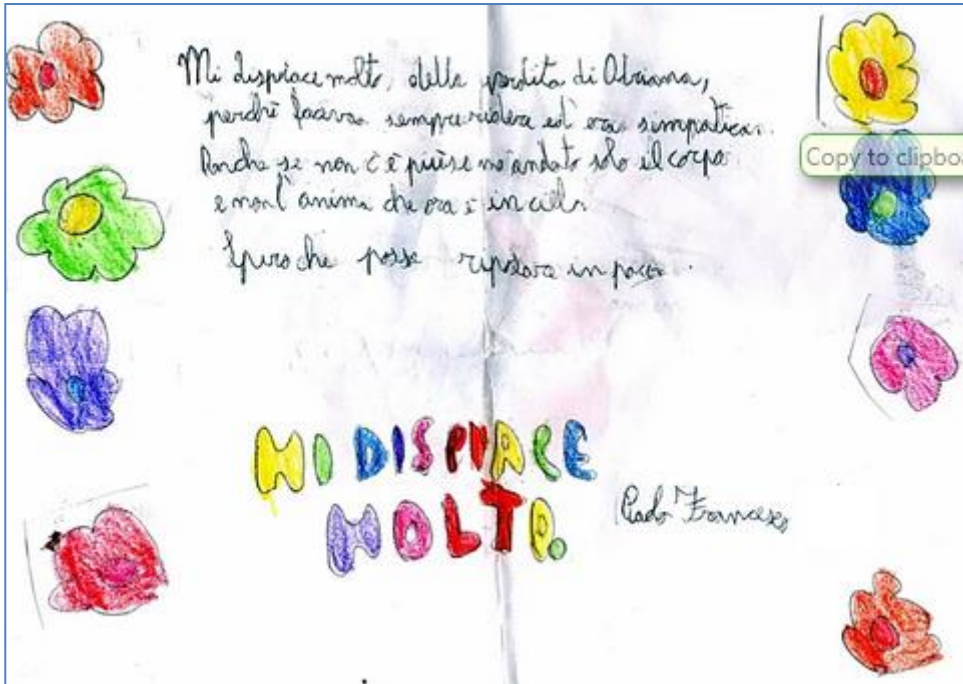 Mi dispiace molto, della perdita di Adriana,
perchè faceva sempre ridere ed era simpatica.
Anche se non c'è più se n'è andato solo il corpo
e non l'anima che ora è in cielo
Spero che possa riposare in pace.
MI DISPIACE
MOLTO.
Paolo Francesco
Copy to clipboa